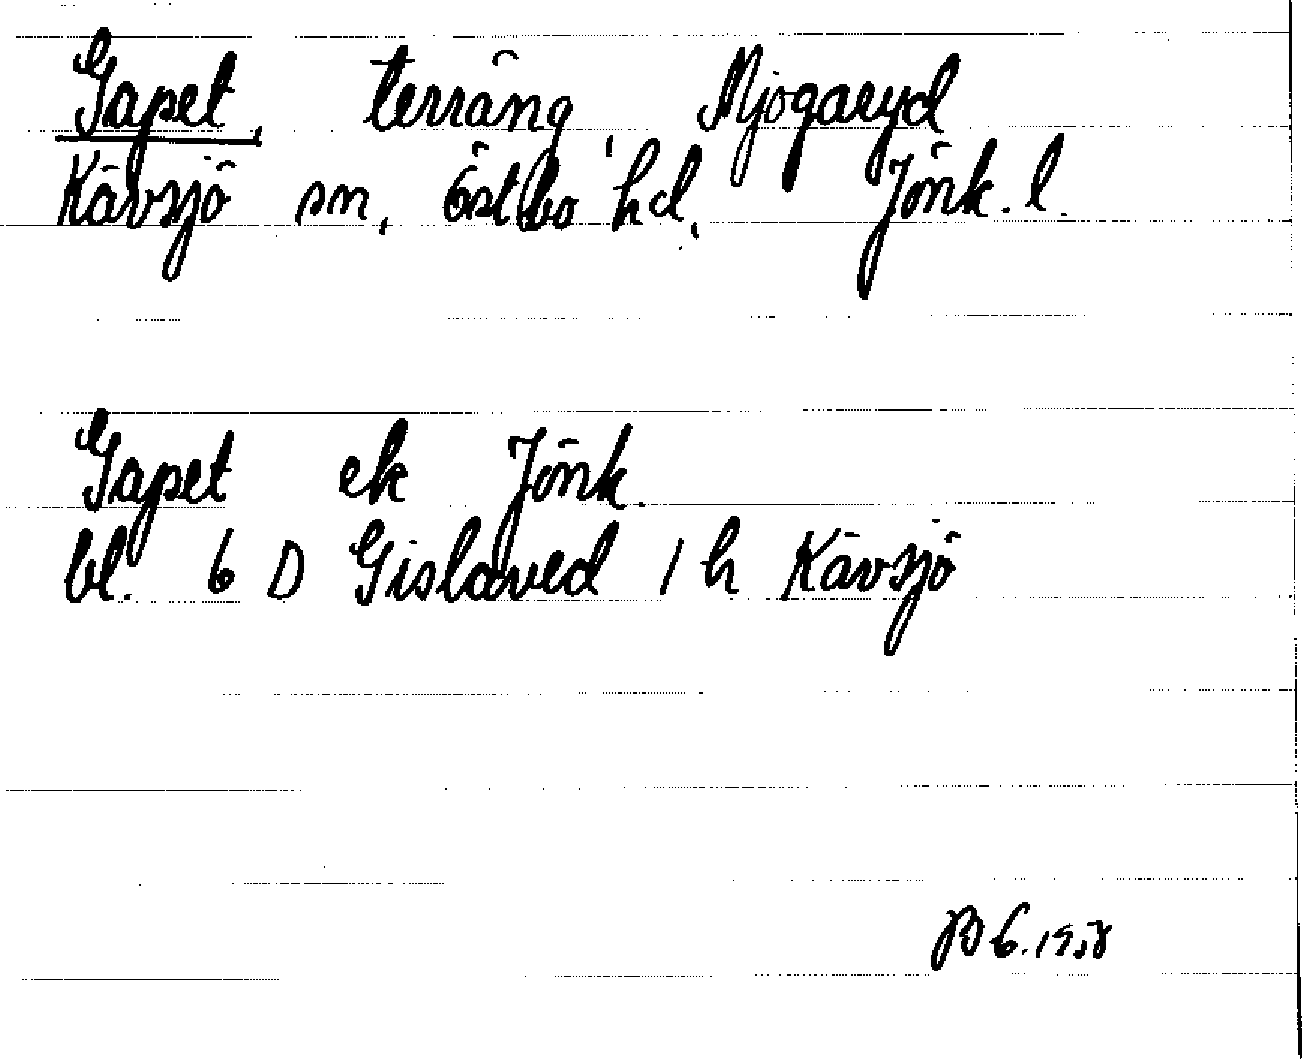 Gapet, terräng, Mjogaryd
Kävsjö sn, Östbo hd, Jönk. l.
Gapet ek Jönk.
bl. 6 D Gislaved 1 h Kävsjö